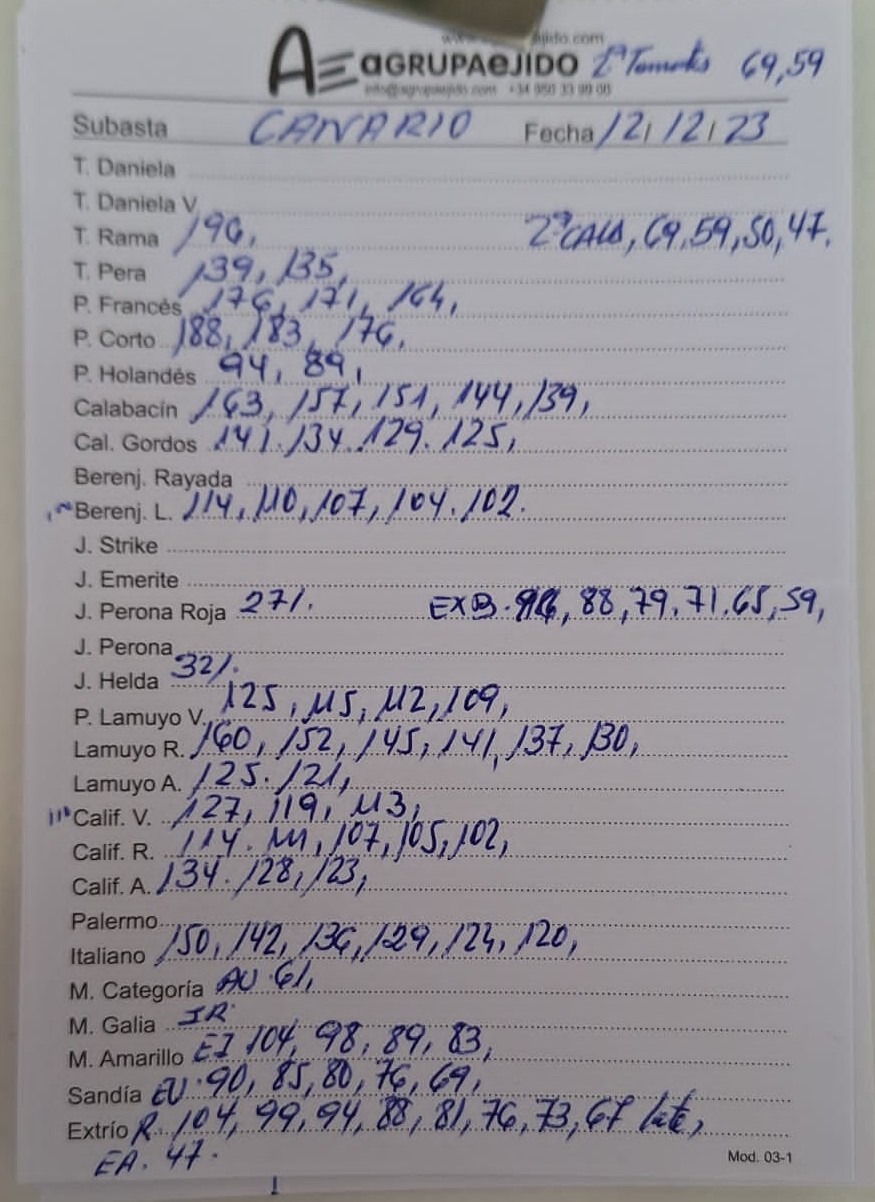 AGRUPAEJIDO 2ª Tomates 69,59
info@agrupaejido.com +34 950 33 99 00
Subasta CANARIO Fecha 12/12/23
T. Daniela
T. Daniela V.
T. Rama 196, 2ª CALA, 69,59,50,47.
T. Pera 139, 135,
P. Francés 176, 171, 164,
P. Corto 188, 183, 176,
P. Holandés 94, 89,
Calabacín 163, 157, 151, 144, 139,
Cal. Gordos 141. 134. 129. 125,
Berenj. Rayada
Berenj. L. 114, 110, 107, 104. 102.
J. Strike
J. Emerite
J. Perona Roja 271. EXB. 88, 79, 71. 65, 59,
J. Perona
J. Helda 321.
P. Lamuyo V. 125, 115, 112, 109,
Lamuyo R. 160, 152, 145, 141, 137, 130,
Lamuyo A. 125. 121,
Calif. V. 127, 119, 113,
Calif. R. 114. 111, 107, 105, 102,
Calif. A. 134. 128, 123,
Palermo
Italiano 150, 142, 136, 129, 124, 120,
M. Categoría AU. 61,
M. Galia IR.
M. Amarillo EI 104, 98, 89, 83,
Sandía EU. 90, 85, 80, 76, 69,
Extrío R. 104, 99, 94, 88, 81, 76, 73, 67
EA. 47.
Mod. 03-1